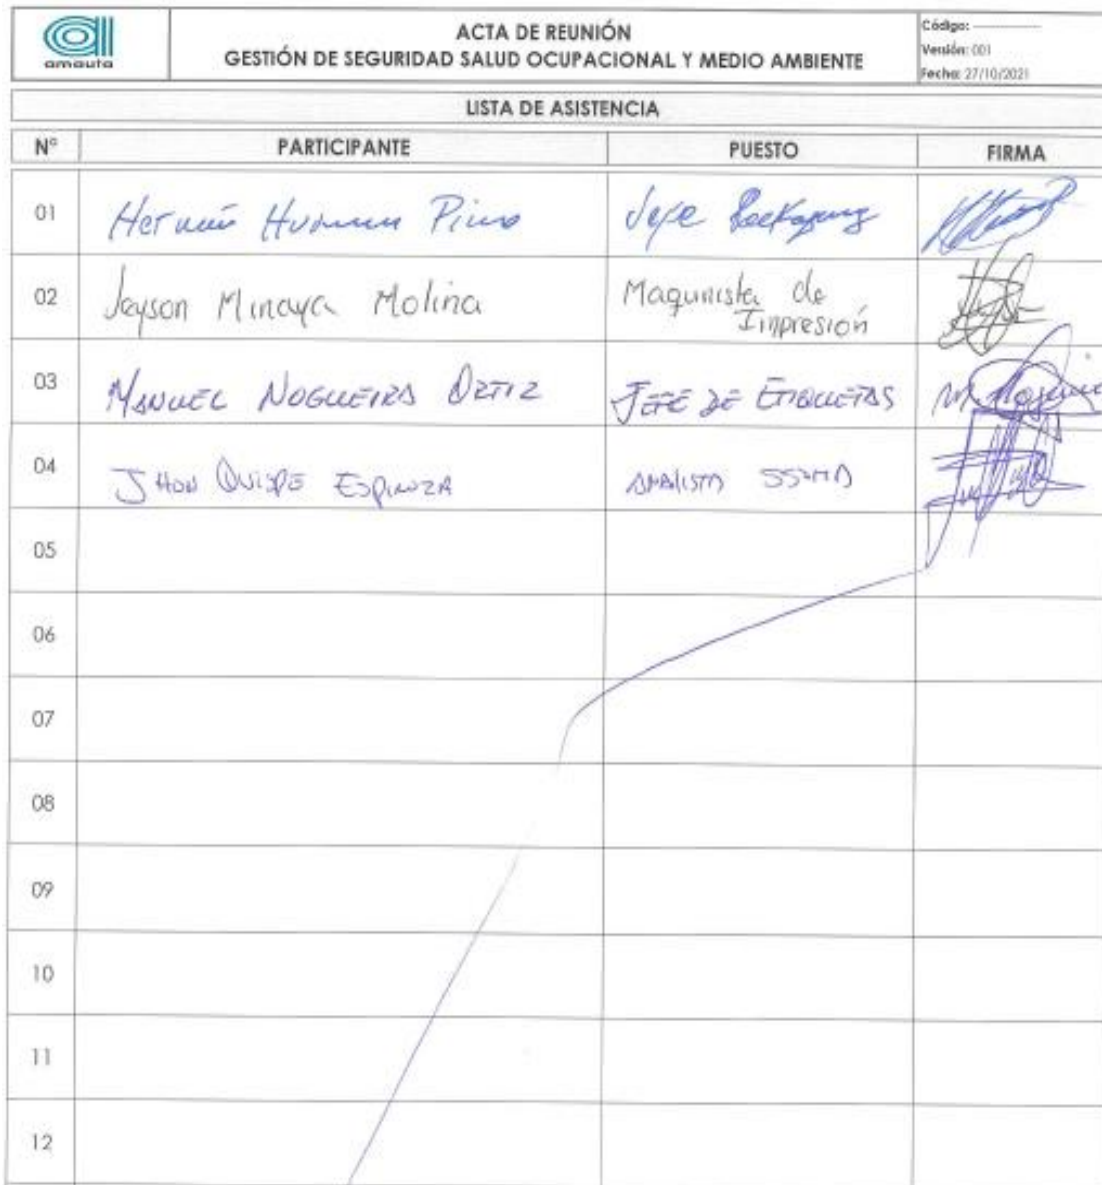 amauta
ACTA DE REUNIÓN
GESTIÓN DE SEGURIDAD SALUD OCUPACIONAL Y MEDIO AMBIENTE
Código: ------------
Versión: 001
Fecha: 27/10/2021
LISTA DE ASISTENCIA
N° PARTICIPANTE PUESTO FIRMA
01 Hernán Pino Jefe Packaging
02 Jeyson Minaya Molina Maquinista de
Impresión
03 MANUEL NOGUEIRA ORTIZ JEFE DE ETIQUETAS
04 JHON QUISPE ESPINOZA ANALISTA SSOMA
05
06
07
08
09
10
11
12